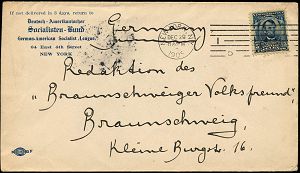 If not delivered in 5 days, return to
Deutsch-Amerikanischer
Socialisten-Bund
German-American Socialist League
64 East 4th Street
NEW YORK
Germany
DEC 29
Redaktion des
"Braunschweiger Volksfreund"
Braunschweig
Kleine Burgstr. 16.